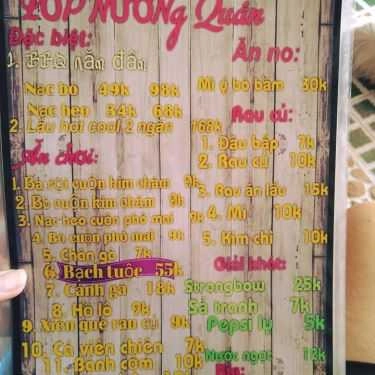 NƯỚNG Quán
Đặc biệt:
Nạc bò 49k 98k
Nạc heo 34k 68k
2. Lẩu hơi cool 2 ngăn 168k
Ăn chơi:
1. Ba rọi cuộn kim châm 9k
2. Bò cuộn kim châm 9k
3. Nạc heo cuộn phô mai 9k
4. Bò cuộn phô mai 9k
5. Chân gà 7k
6. Bạch tuộc 55k
7. Cánh gà 18k
8. Hồ lô 9k
9. Xiên que rau củ 9k
10. Cá viên chiên 7k
11. Bánh cơm 10k
Ăn no:
Mì ý bò bằm 30k
Rau củ:
1. Đậu bắp 7k
2. Rau củ 10k
3. Rau ăn lẩu 15k
4. Mì 10k
5. Kim chi 10k
Giải khát:
Strongbow 25k
Sả tranh 7k
Pepsi ly 5k
Nước ngọt 12k